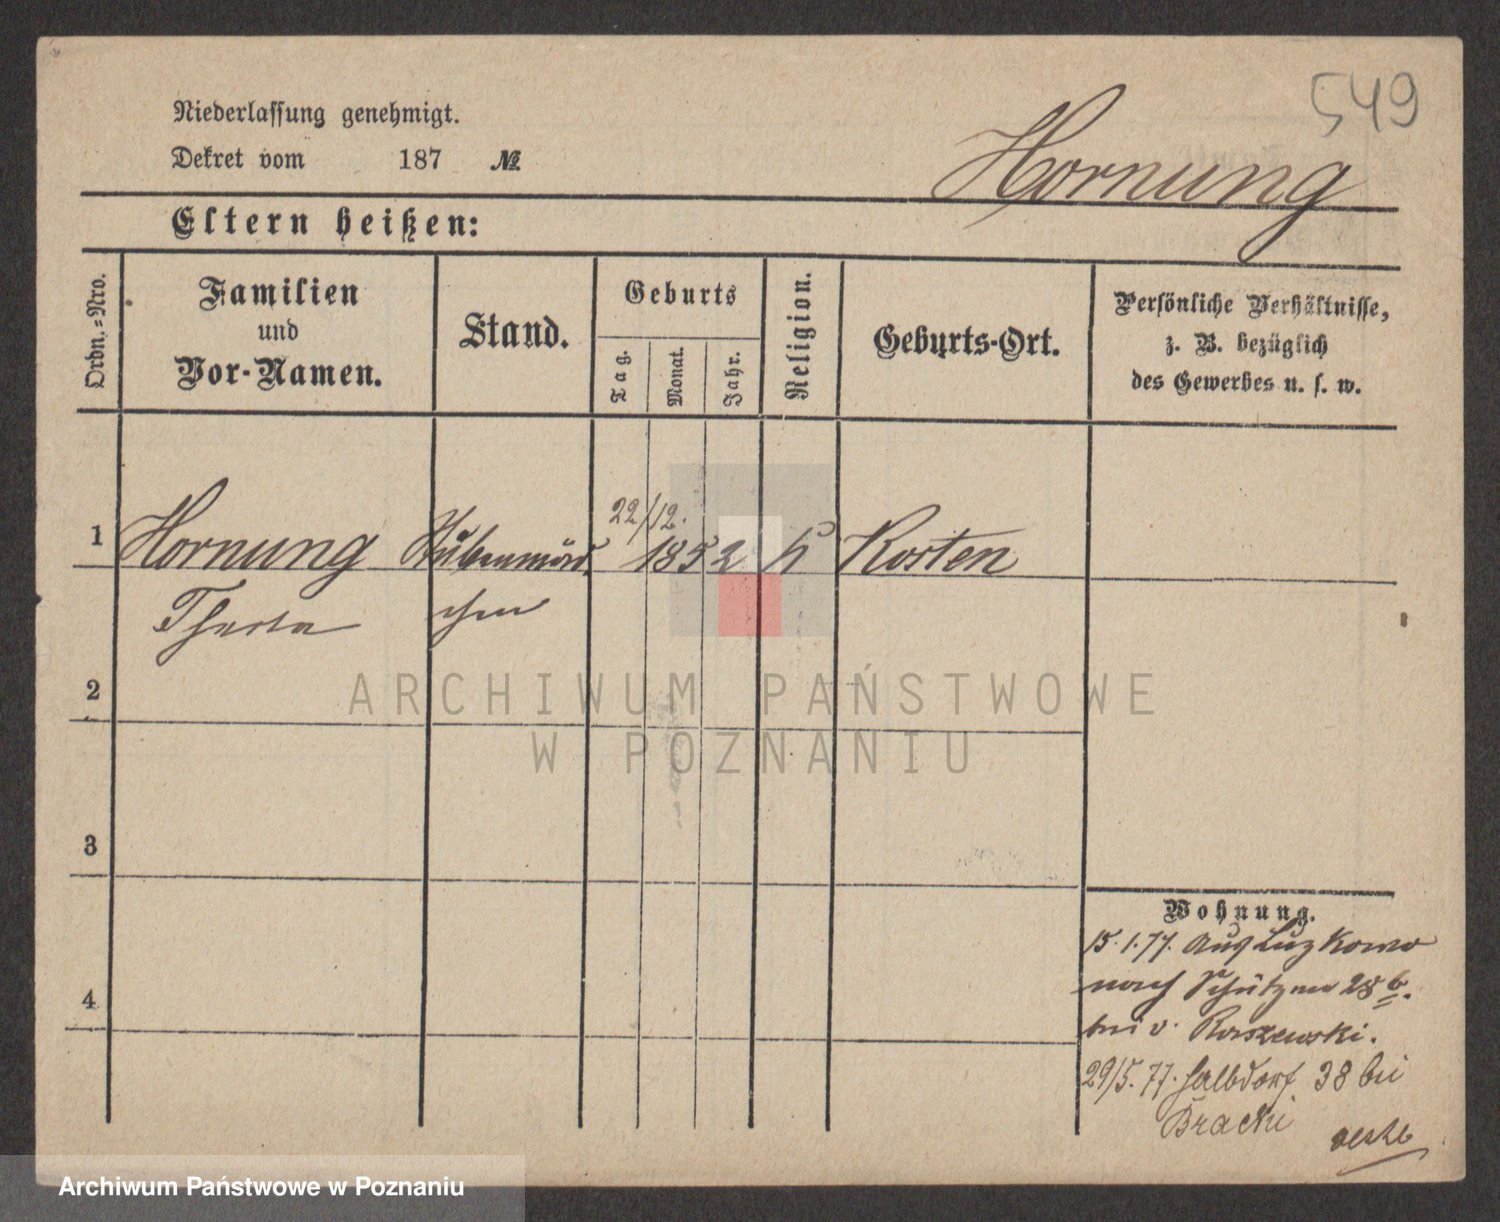 549
Niederlassung genehmigt.
Dekret vom 187 №
Hornung
Eltern heißen:
Ordn.=Nro.
Familien
und
Vor-Namen.
Stand.
Geburts
Tag.
Monat.
Jahr.
Religion.
Geburts-Ort.
Persönliche Verhältnisse,
z. B. bezüglich
des Gewerbes u. s. w.
22/12.
1 Hornung Stubenmäd 1852 k Kosten
chen
2
3
4
Wohnung.
15.1.77. aus Luzkowo
nach Schützen 28 b.
bei v. Raszewski.
29/5.77. Halbdorf 38 bei
Bracki
ARCHIWUM PAŃSTWOWE
W POZNANIU
Archiwum Państwowe w Poznaniu